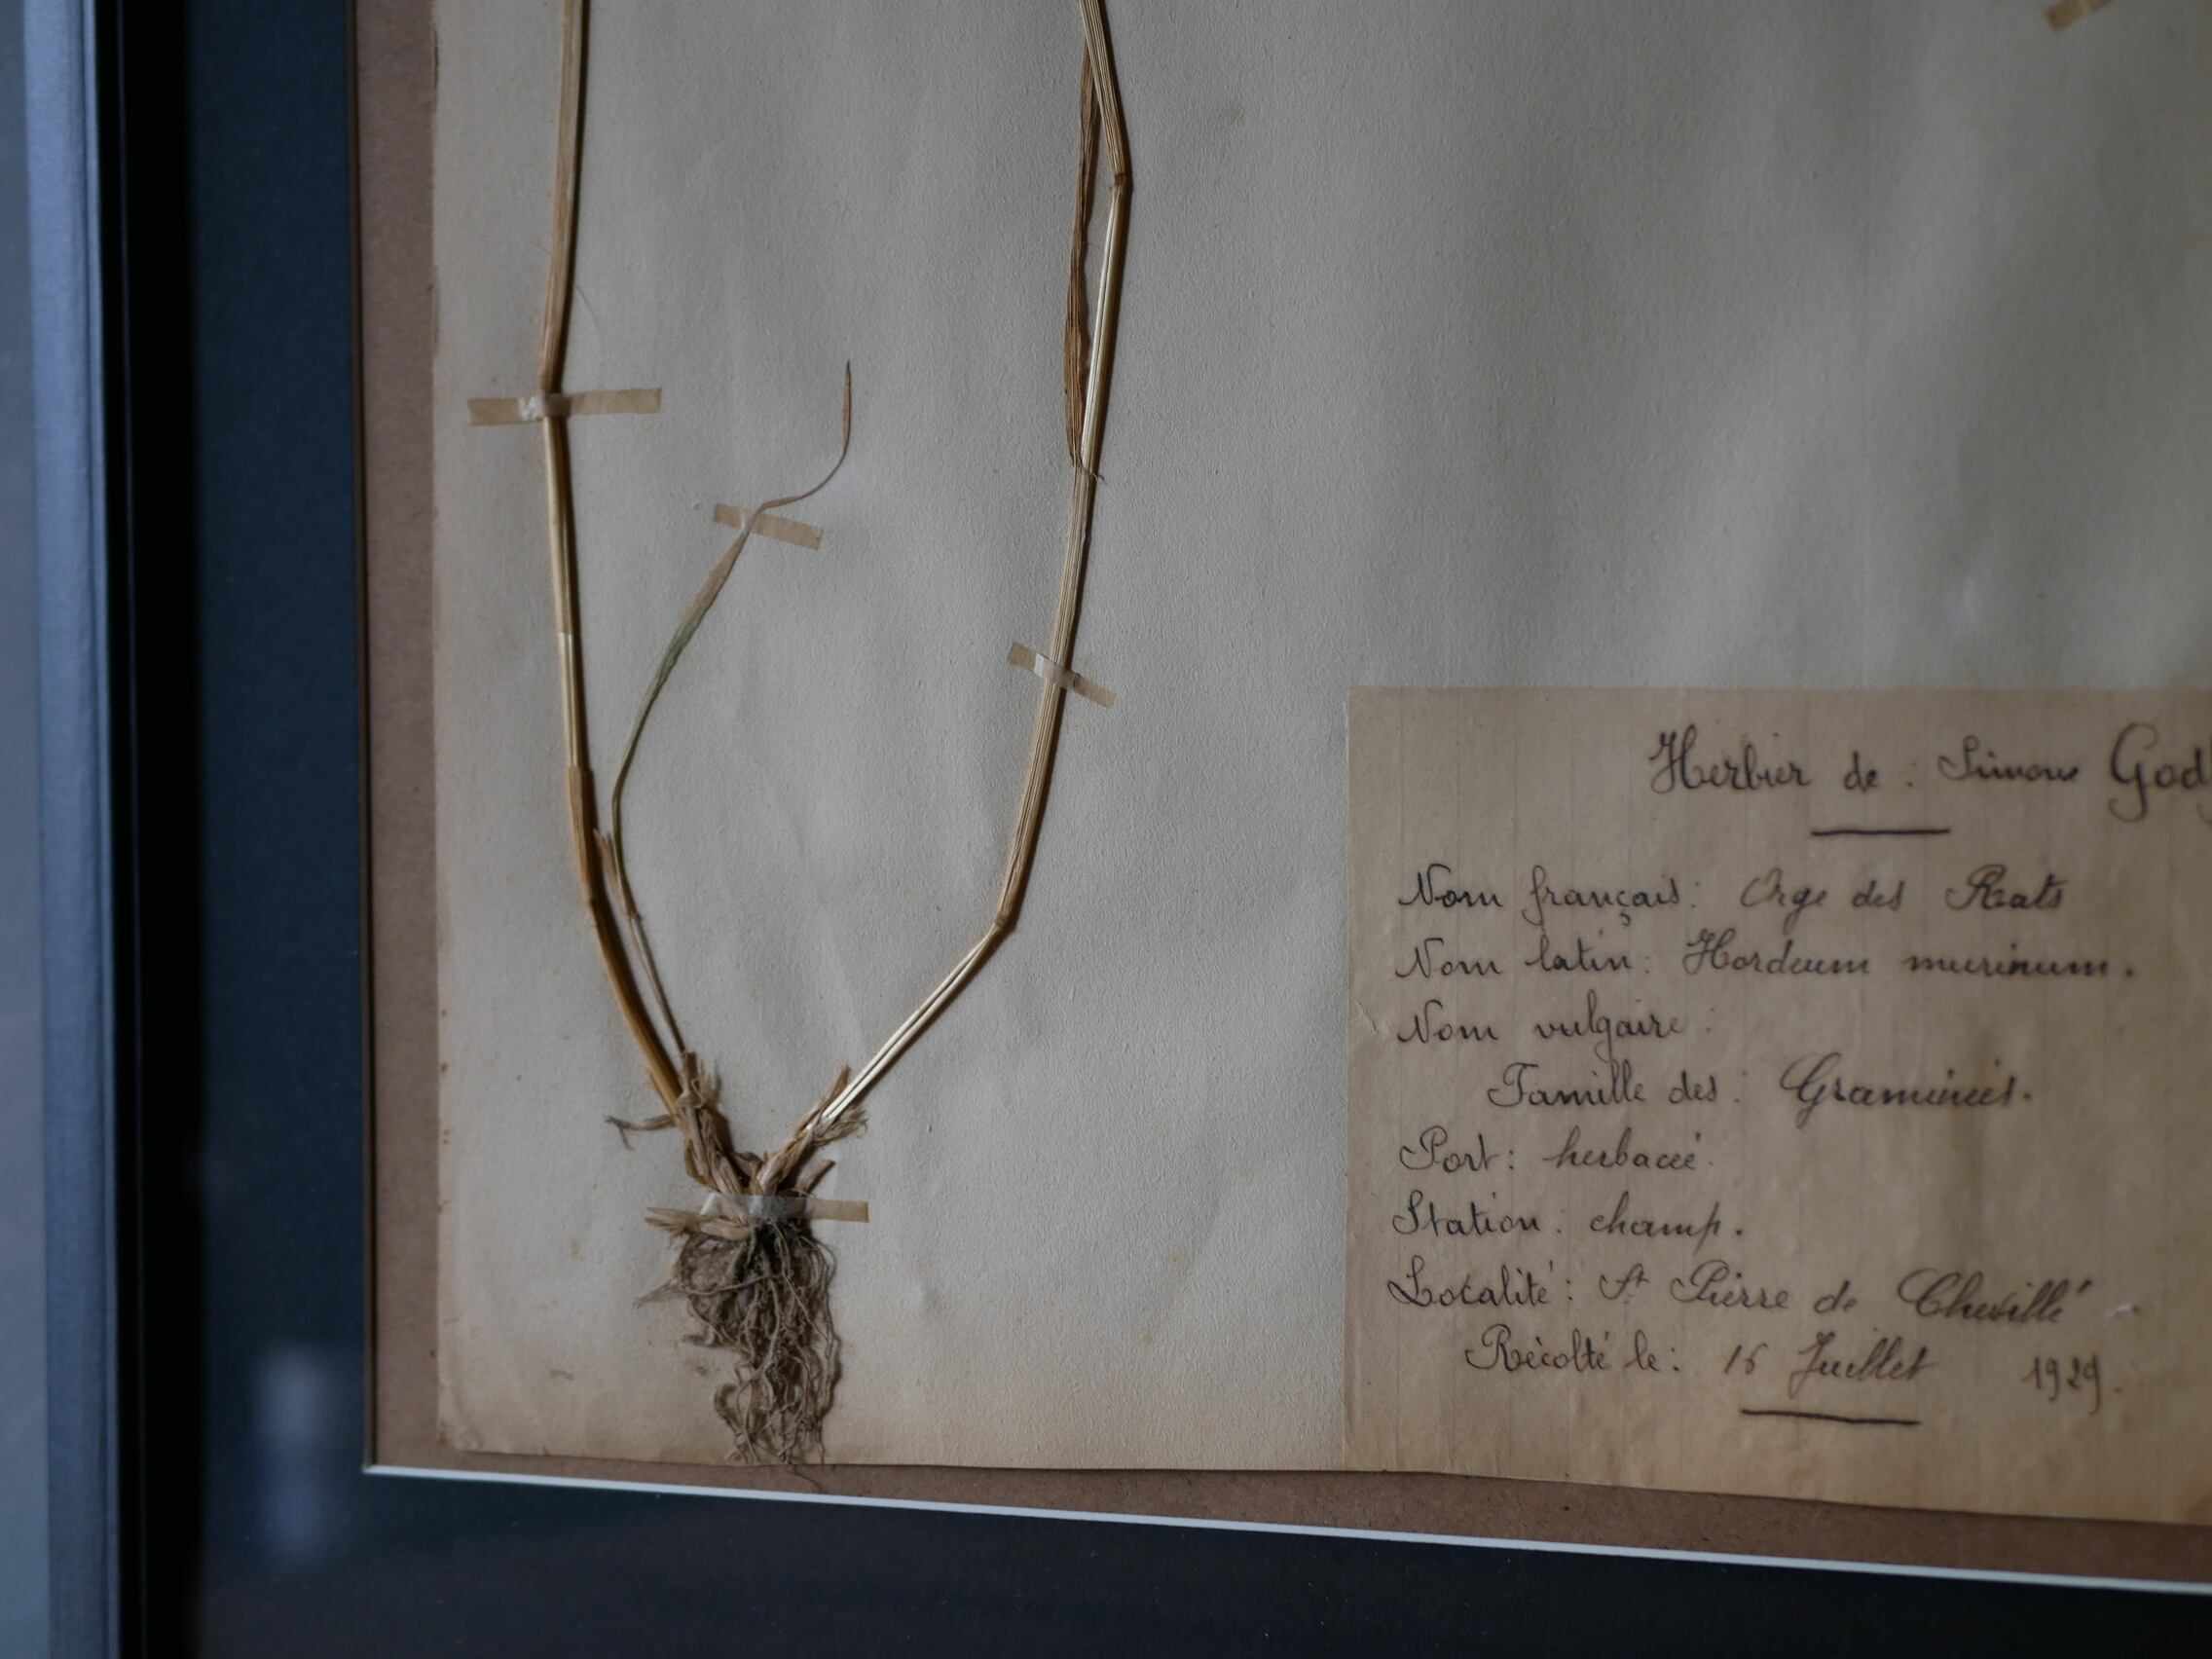 Herbier de : Simone God
Nom français : Orge des Rats
Nom latin : Hordeum murinum.
Nom vulgaire :
Famille des : Graminées.
Port : herbacé.
Station : champ.
Localité : St Pierre de Chevillé
Récolté le : 16 Juillet 1929.